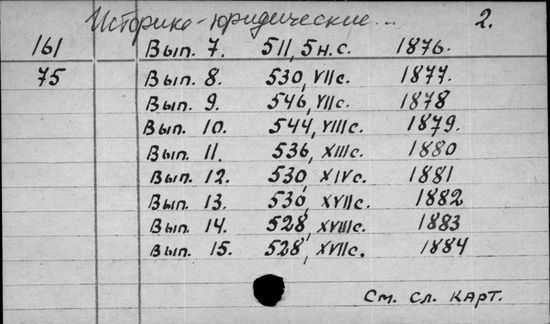 Историко-юридические... 2.
161 Вып. 7. 511, 5 н. с. 1876.
75 Вып. 8. 530, VII с. 1877.
Вып. 9. 546, VII с. 1878
Вып. 10. 544, VIII с. 1879.
Вып. 11. 536, XIII с. 1880
Вып. 12. 530, XIV с. 1881
Вып. 13. 530, XVII с. 1882
Вып. 14. 528, XVIII с. 1883
Вып. 15. 528, XVII с. 1884
См. сл. карт.